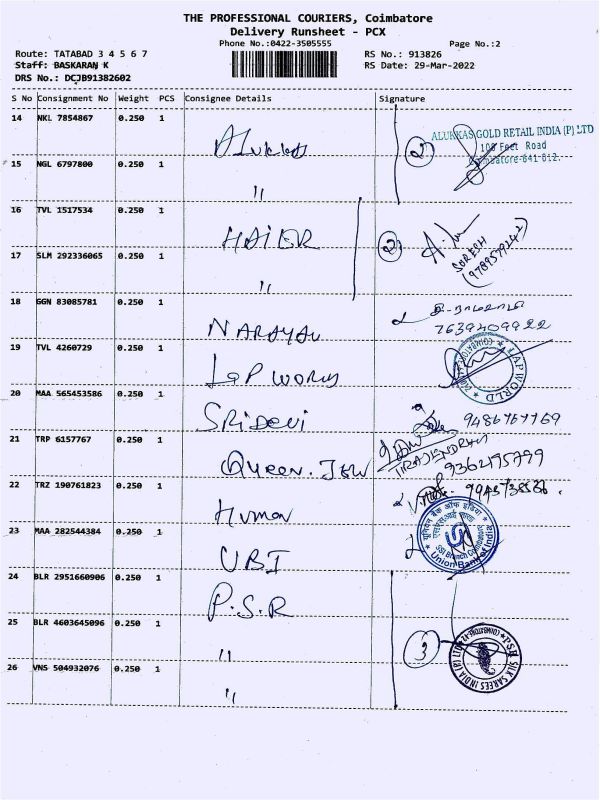 THE PROFESSIONAL COURIERS, Coimbatore
Delivery Runsheet - PCX
Phone No.:0422-3505555
Page No.:2
Route: TATABAD 3 4 5 6 7
RS No.: 913826
Staff: BASKARAN K
RS Date: 29-Mar-2022
DRS No.: DCJB91382602
S No Consignment No Weight PCS Consignee Details Signature
14 NKL 7854867 0.250 1 Alukkas 2 ALUKKAS GOLD RETAIL INDIA (P) LTD
100 Feet Road
Coimbatore-641 012.
15 NGL 6797800 0.250 1 "
16 TVL 1517534 0.250 1 HAIER 2
SURESH
17 SLM 292336065 0.250 1 "
(9789579242)
18 GGN 83085781 0.250 1 NARAYAN
7639409922
19 TVL 4260729 0.250 1 LAP WORLD LAPWORLD
20 MAA 565453586 0.250 1 SRIDEVI 9486767769
21 TRP 6157767 0.250 1 QUEEN. JEW T. RAJENDRAN
9362195799
22 TRZ 190761823 0.250 1 HUMAN
23 MAA 282544384 0.250 1 UBI यूनियन बैंक ऑफ इंडिया
SSI Branch Coimbatore
Union Bank of India
24 BLR 2951660906 0.250 1 P.S.R
25 BLR 4603645096 0.250 1 " 3 PSR SILK SAREES INDIA (P) LTD
26 VNS 504932076 0.250 1 "